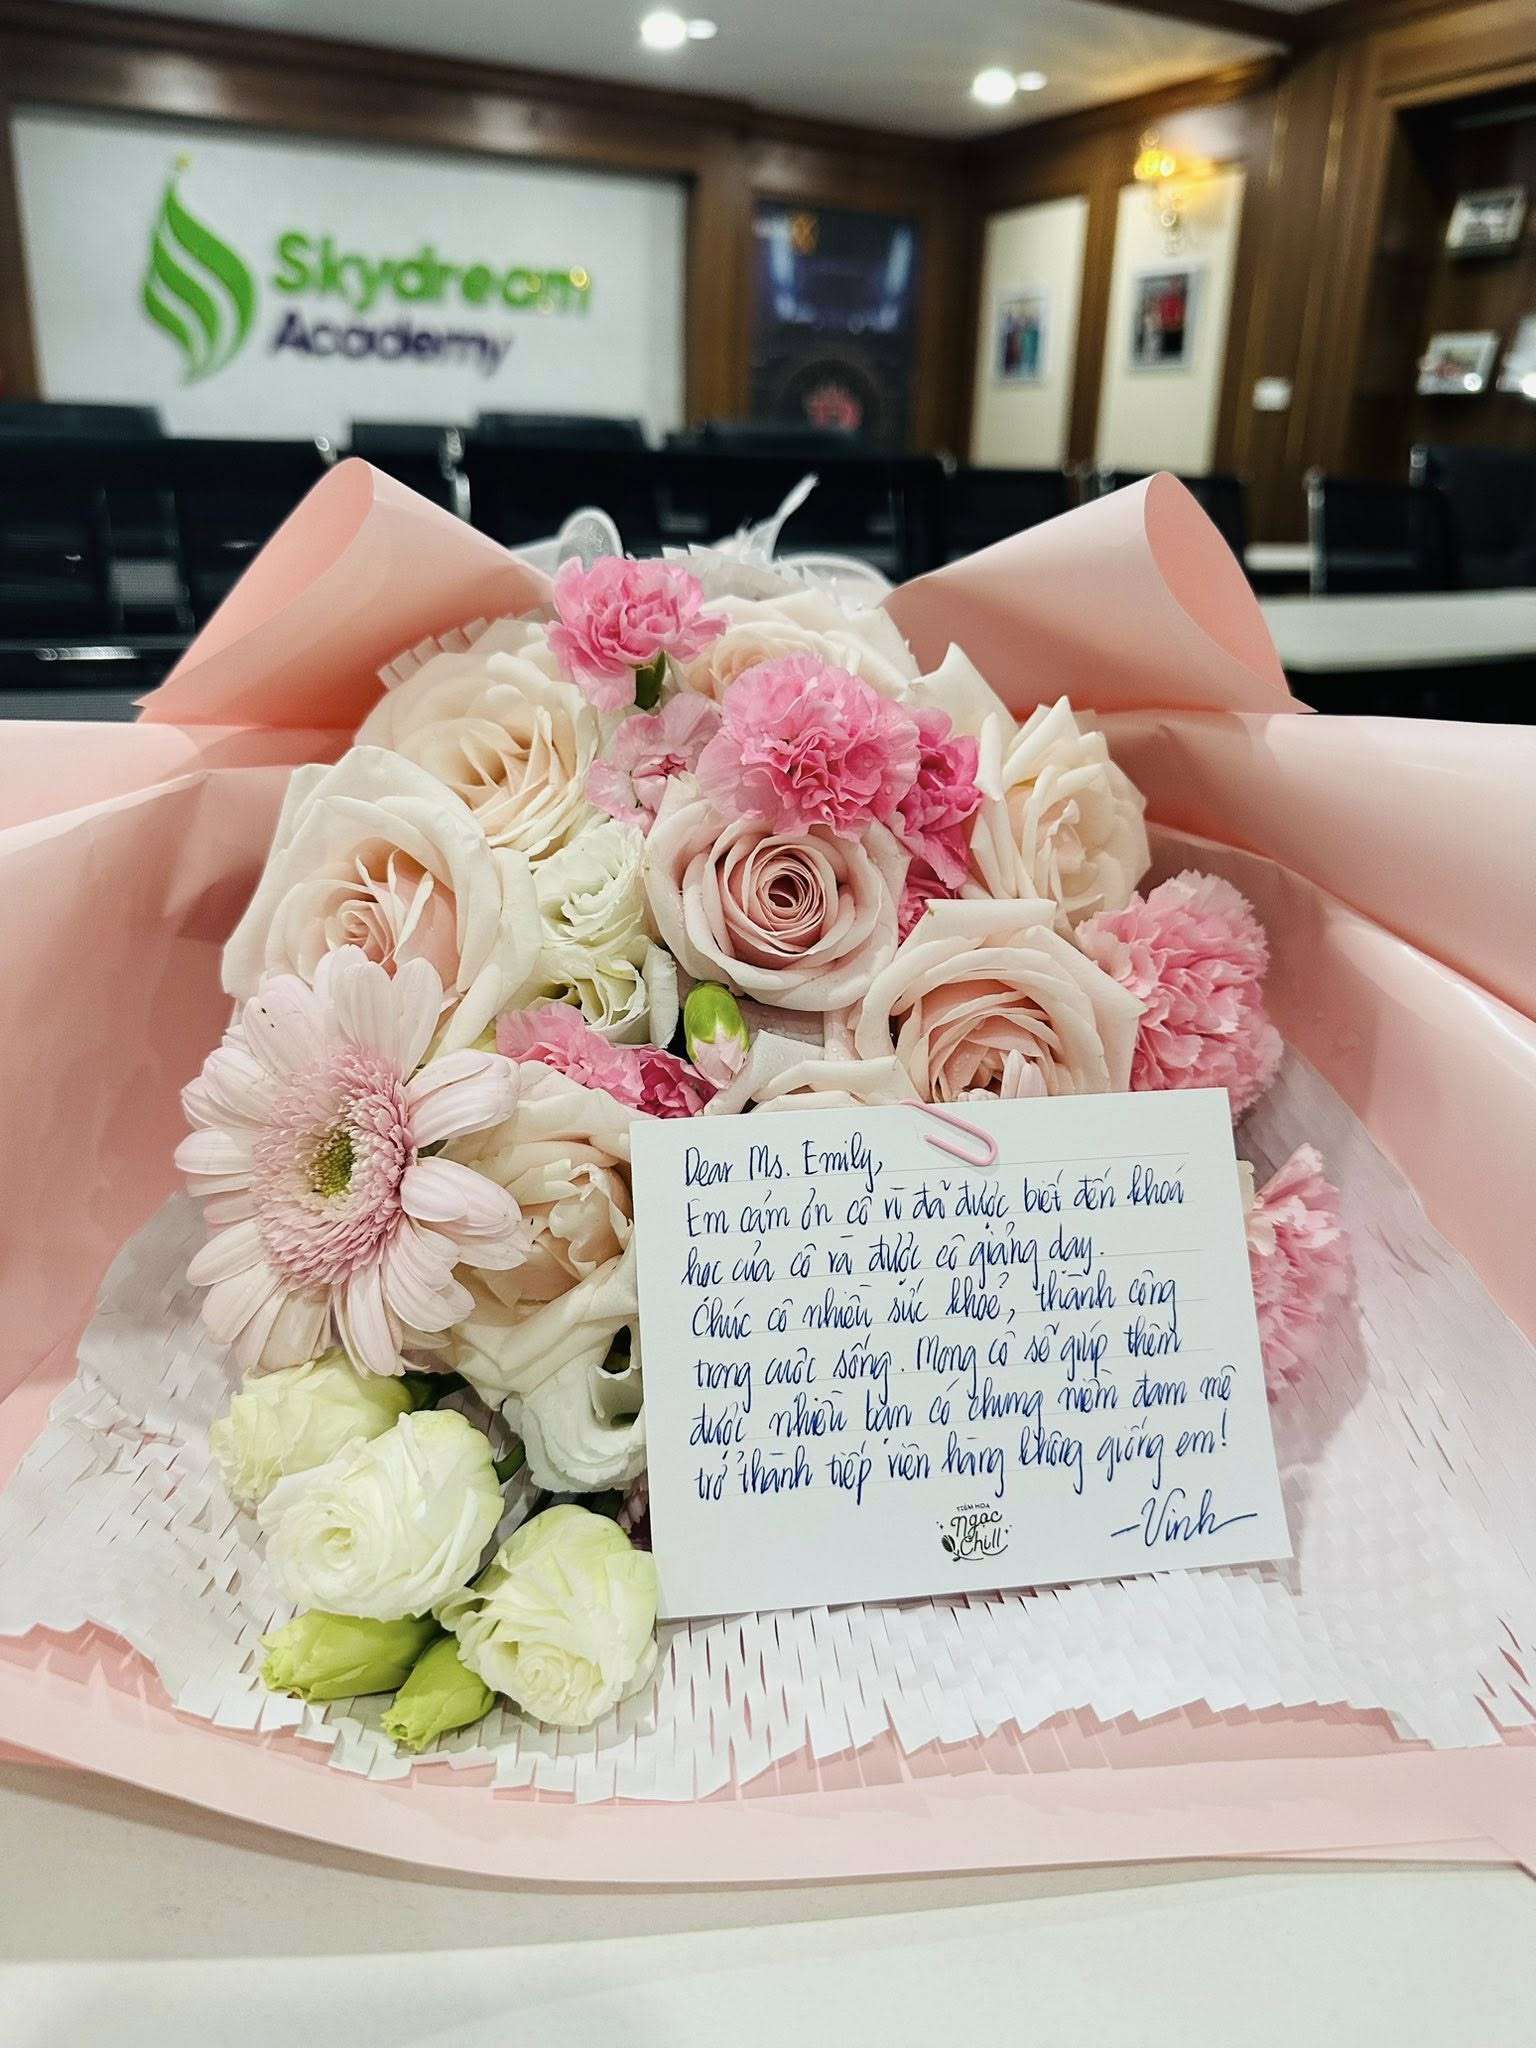 Skydream
Academy
Dear Ms. Emily,
Em cảm ơn cô vì đã được biết đến khoá
học của cô và được cô giảng dạy.
Chúc cô nhiều sức khoẻ, thành công
trong cuộc sống. Mong cô sẽ giúp thêm
được nhiều bạn có chung niềm đam mê
trở thành tiếp viên hàng không giống em!
TIỆM HOA
Ngọc
Chill
-Vinh-